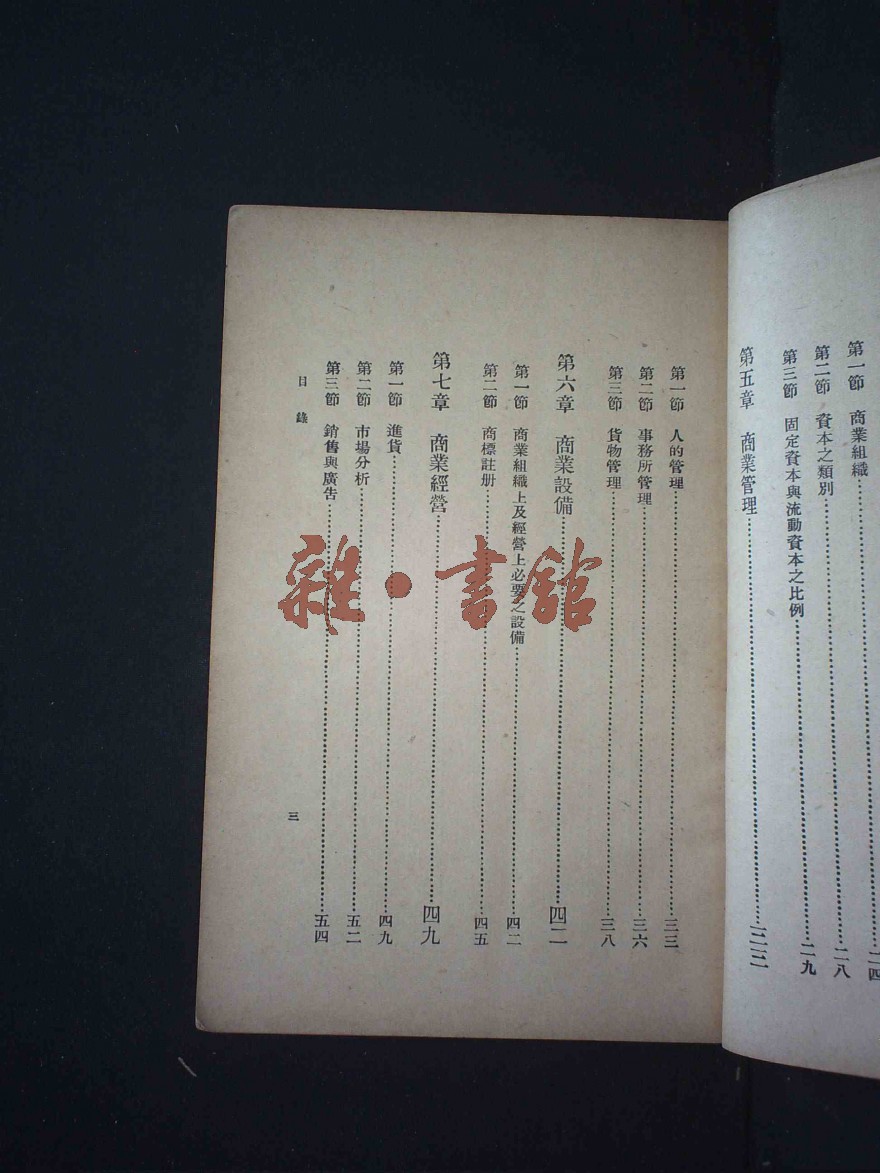 第一節 商業組織……二四
第二節 資本之類別……二八
第三節 固定資本與流動資本之比例……二九
第五章 商業管理……三三
第一節 人的管理……三三
第二節 事務所管理……三六
第三節 貨物管理……三八
第六章 商業設備……四二
第一節 商業組織上及經營上必要之設備……四二
第二節 商標註册……四五
第七章 商業經營……四九
第一節 進貨……四九
第二節 市場分析……五二
第三節 銷售與廣告……五四
目錄
三
雜·書館